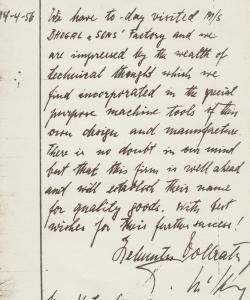 14-4-56 We have to-day visited M/s
DHOGAL & SONS' Factory and we
are impressed by the wealth of
technical thought which we
find incorporated in the special
purpose machine tools of their
own design and manufacture
there is no doubt in our mind
but that this firm is well ahead
and will establish their name
for quality goods. With best
wishes for their further success!